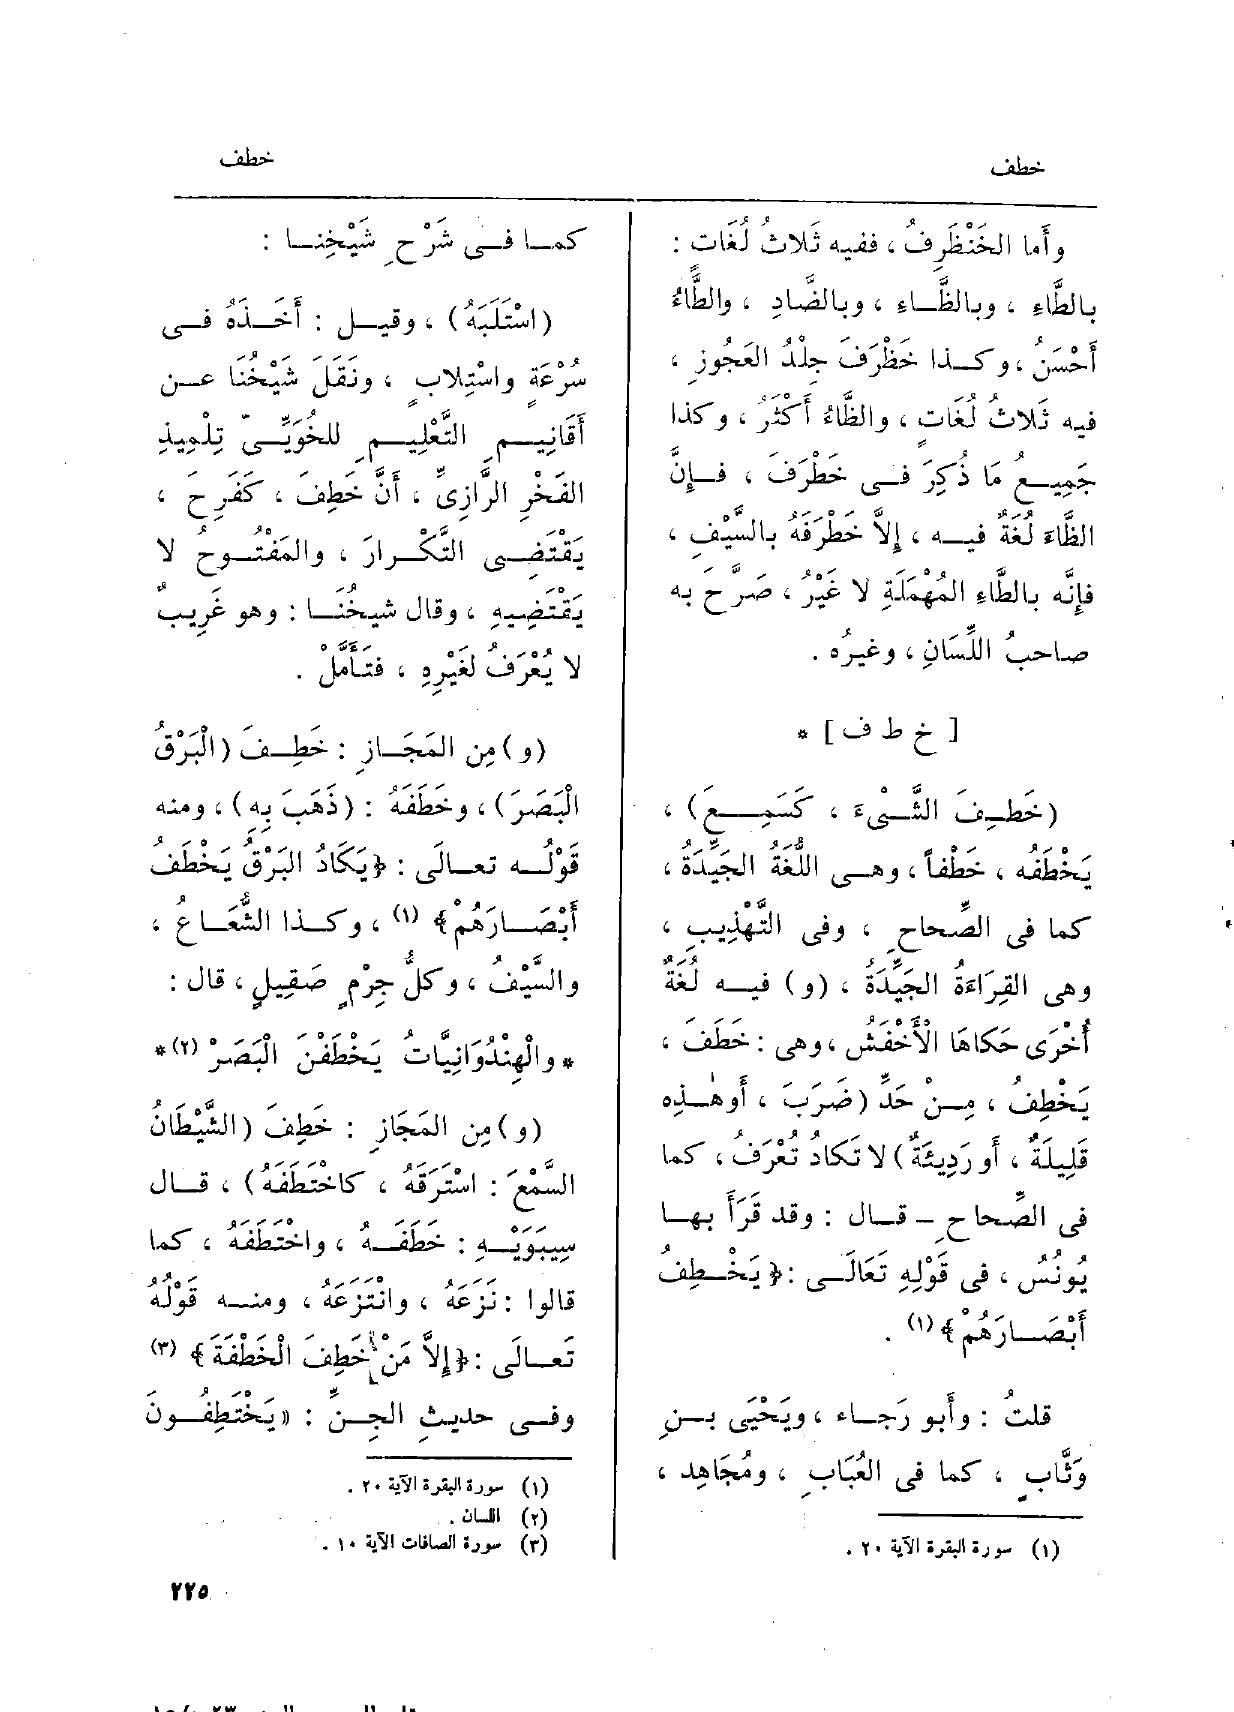 خطف
خطف
وأما الخَنْظَرِفُ ، ففيه ثَلاثُ لُغَاتٍ :
بالطَّاءِ ، وبالظَّــاءِ ، وبالضَّادِ ، والطَّاءُ
أَحْسَنُ ، وكــذا خَظْرَفَ جِلْدُ العَجُوزِ ،
فيه ثَلاثُ لُغَاتٍ ، والظَّاءُ أَكْثَرُ ، وكذا
جَمِيــعُ مَا ذُكِرَ فــى خَطْرَفَ ، فــإِنَّ
الظَّاءَ لُغَةٌ فيــه ، إِلاَّ خَطْرَفَهُ بالسَّيْفِ ،
فإِنَّه بالطَّاءِ المُهْمَلَةِ لا غَيْرُ ، صَرَّحَ به
صاحبُ اللِّسَانِ ، وغيرُه .
[ خ ط ف ] *
(خَطِـفَ الشَّــىْءَ ، كَسَمِــــعَ) ،
يَخْطَفُه ، خَطْفاً ، وهــى اللُّغَةُ الجَيِّدَةُ ،
كما فى الصِّحاحِ ، وفى التَّهْذِيبِ ،
وهى القِرَاءَةُ الجَيِّدَةُ ، (و) فيــه لُغَةٌ
أُخْرَى حَكَاهَا الْأَخْفَشُ ، وهى : خَطَفَ ،
يَخْطِفُ ، مِــنْ حَدِّ (ضَرَبَ ، أَوهٰــذِه
قَلِيلَةٌ ، أَو رَدِيئَةٌ) لا تَكادُ تُعْرَفُ ، كما
فى الصِّحاحِ – قــال : وقد قَرَأَ بهــا
يُونُسُ ، فى قَوْلِهِ تَعَالَــى : ﴿يَخْــطِفُ
أَبْصَــارَهُمْ﴾ (١) .
قلتُ : وأَبو رَجَــاء ، ويَحْيَى بــنِ
وَثَّابٍ ، كما فى العُبَابِ ، ومُجَاهِد ،
(١) سورة البقرة الآية ٢٠ .
كمــا فــى شَرْحِ شَيْخِنــا :
(اسْتَلَبَهُ) ، وقيــل : أَخَــذَهُ فــى
سُرْعَةٍ واسْتِلابٍ ، ونَقَلَ شَيْخُنَا عــن
أَقَانِيــمِ التَّعْلِيــمِ للخُوَيِّــىّ تِلْمِيذِ
الفَخْرِ الرَّازِىِّ ، أَنَّ خَطِفَ ، كَفَرِحَ ،
يَقْتَضــى التَّكْــرارَ ، والمَفْتُــوحُ لا
يَقْتَضِيهِ ، وقال شيخُنَــا : وهو غَرِيبٌ
لا يُعْرَفُ لغَيْرِهِ ، فتَأَمَّلْ .
(و) مِن المَجَــازِ : خَطِــفَ (الْبَرْقُ
الْبَصَرَ) ، وخَطَفَهُ : (ذَهَبَ بِهِ) ، ومنه
قَوْلُــه تعــالَى : ﴿يَكَادُ البَرْقُ يَخْطَفُ
أَبْصَــارَهُمْ﴾ (١) ، وكــذا الشُّعَــاعُ ،
والسَّيْفُ ، وكلُّ جِرْمٍ صَقِيلٍ ، قال :
* والْهِنْدُوَانِيَّاتُ يَخْطَفْنَ الْبَصَرْ (٢) *
(و) مِن المَجَازِ : خَطِفَ (الشَّيْطَانُ
السَّمْعَ : اسْتَرَقَهُ ، كاخْتَطَفَهُ) ، قــال
سِيبَوَيْــهِ : خَطَفَــهُ ، واخْتَطَفَهُ ، كما
قالوا : نَزَعَهُ ، وانْتَزَعَهُ ، ومنــه قَوْلُهُ
تَعــالَى : ﴿إِلاَّ مَنْ خَطِفَ الْخَطْفَةَ﴾ (٣)
وفــى حديثِ الجِــنِّ : « يَخْتَطِفُــونَ
(١) سورة البقرة الآية ٢٠ .
(٢) اللسان .
(٣) سورة الصافات الآية ١٠ .
٢٢٥